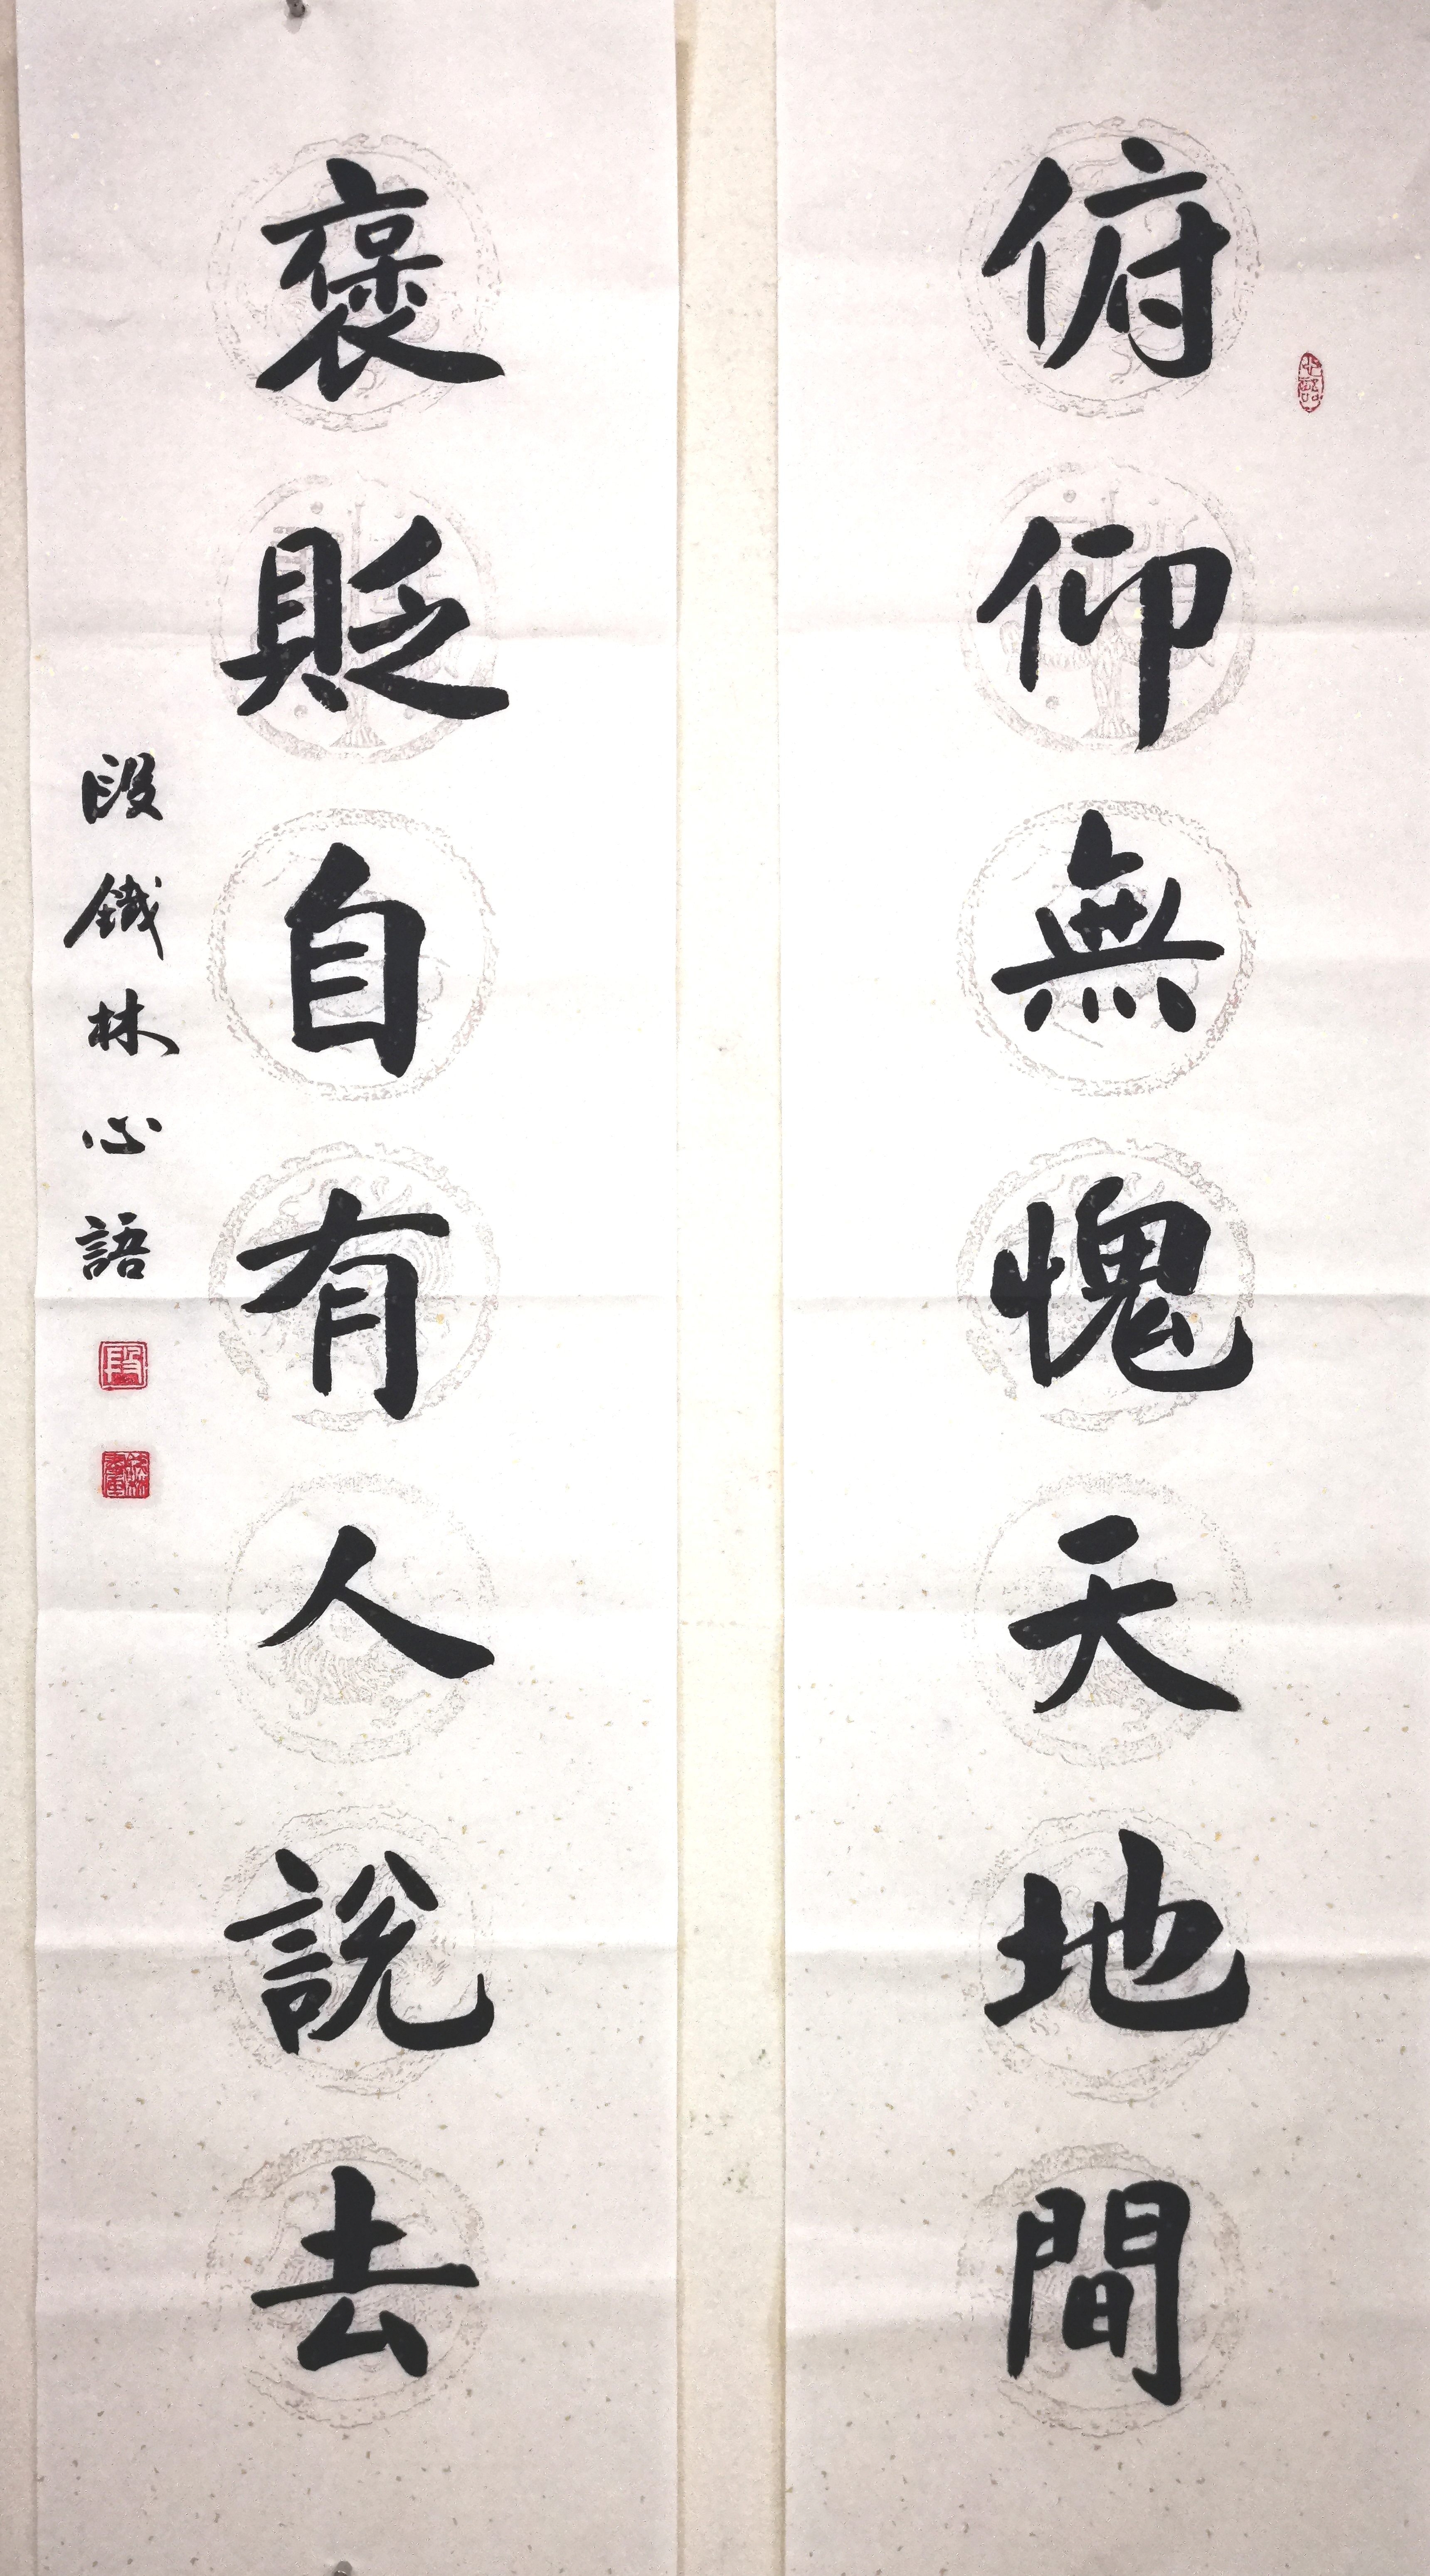 俯仰無愧天地間
褒貶自有人說去
段鐵林心語